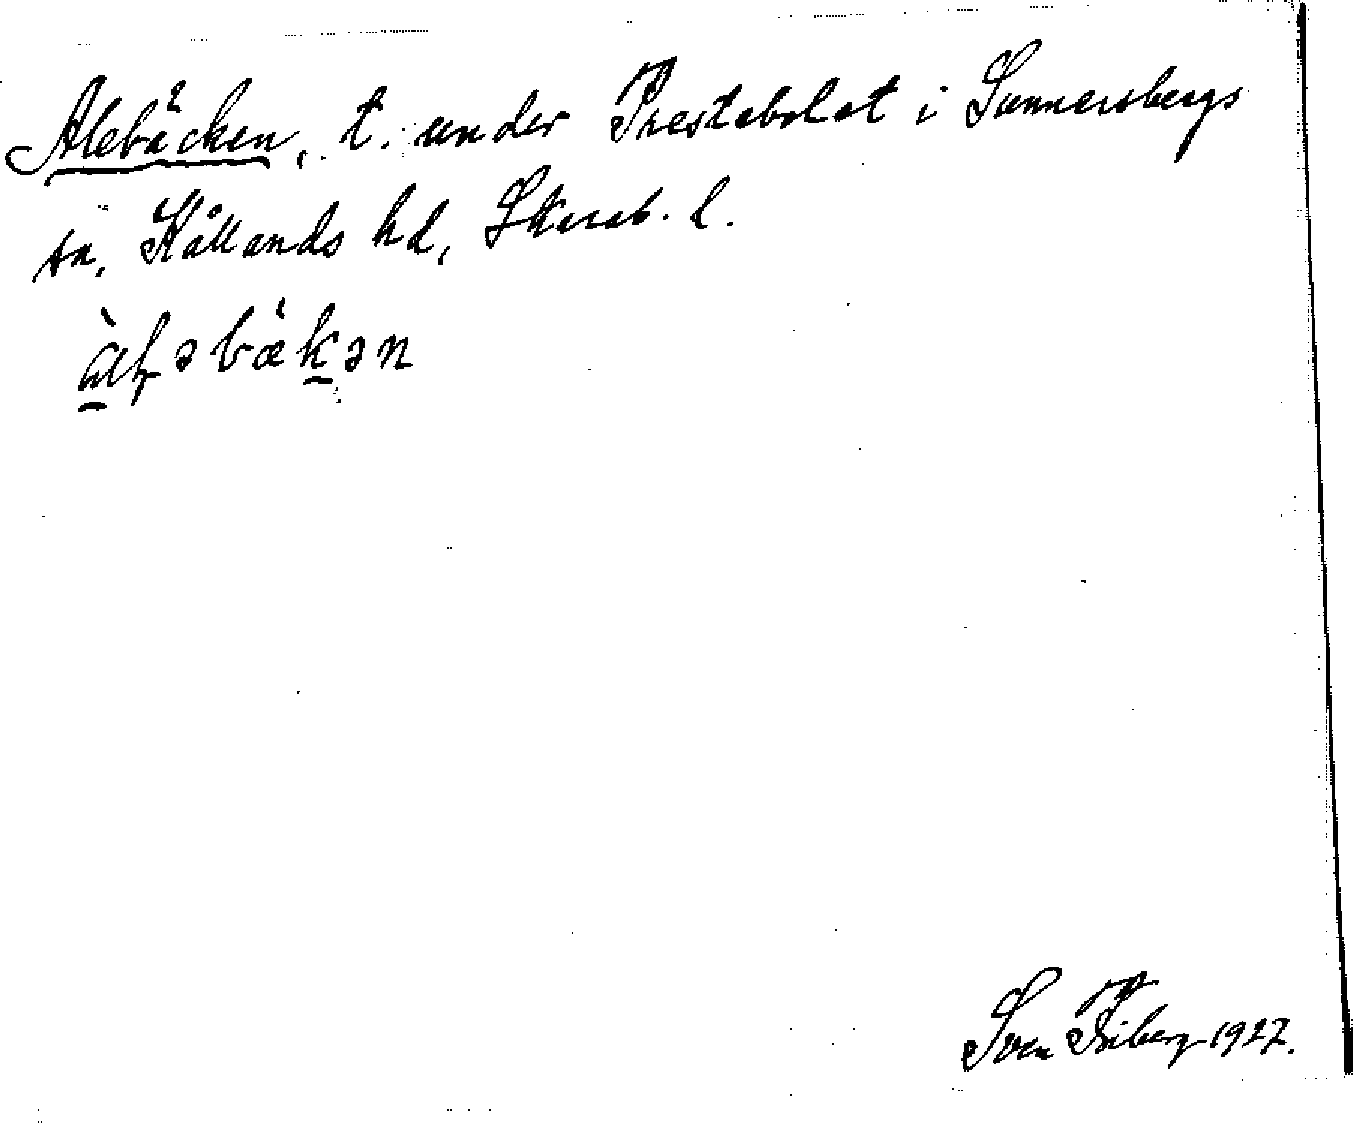 Alebäcken, t. under Prestebolet i Sunnersbergs
sn, Kållands hd, Skarab. l.
àłəbækən
Sven Friberg 1927.